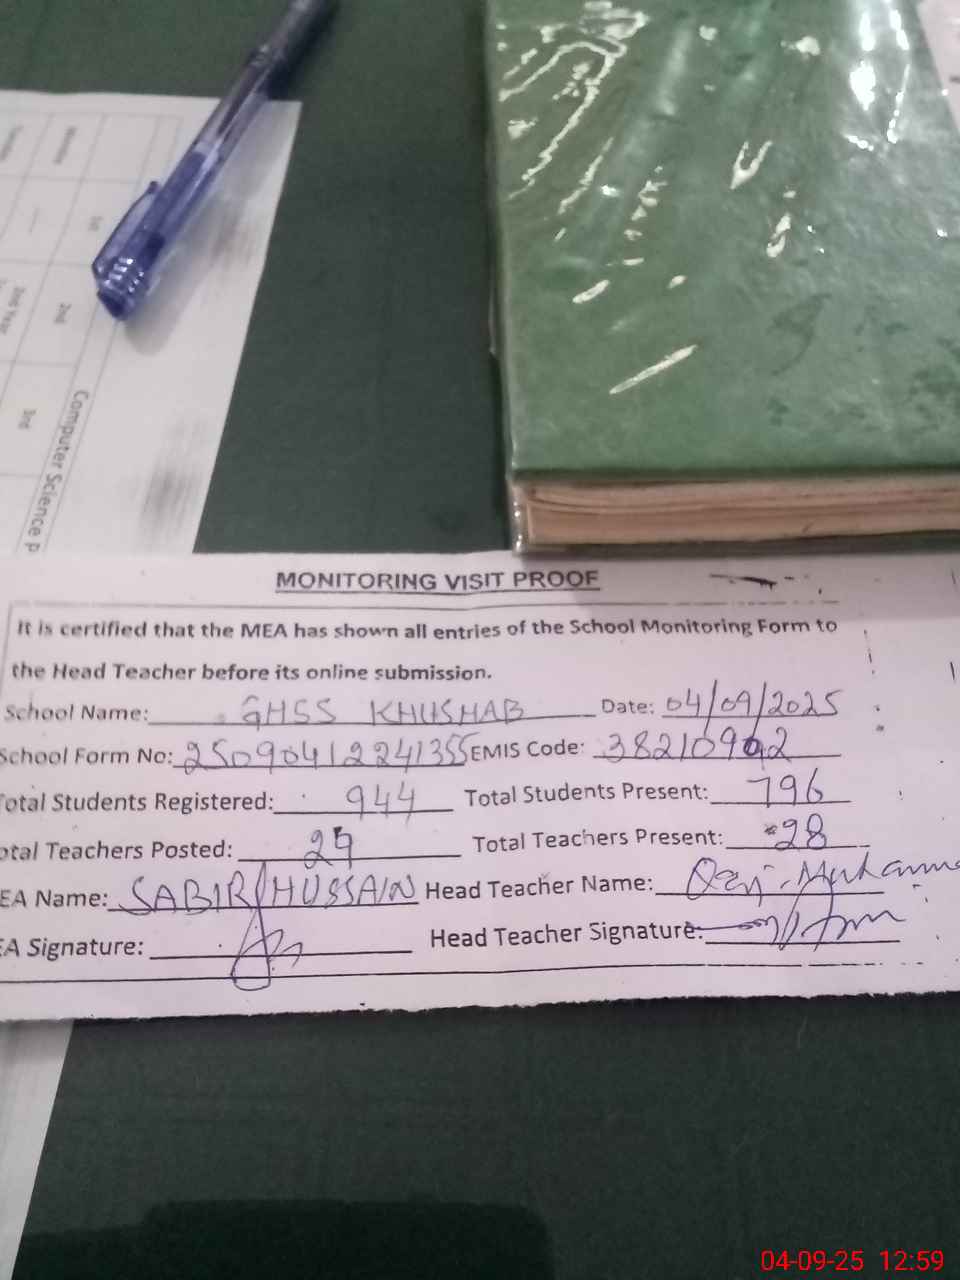 Computer Science p
1st
2nd
3rd
2nd Year
MONITORING VISIT PROOF
It is certified that the MEA has shown all entries of the School Monitoring Form to
the Head Teacher before its online submission.
School Name: GHSS KHUSHAB Date: 04/09/2025
School Form No: 25090412241355 EMIS Code: 38210902
otal Students Registered: 944 Total Students Present: 796
otal Teachers Posted: 29 Total Teachers Present: 28
EA Name: SABIR HUSSAIN Head Teacher Name:
EA Signature: Head Teacher Signature:
04-09-25 12:59